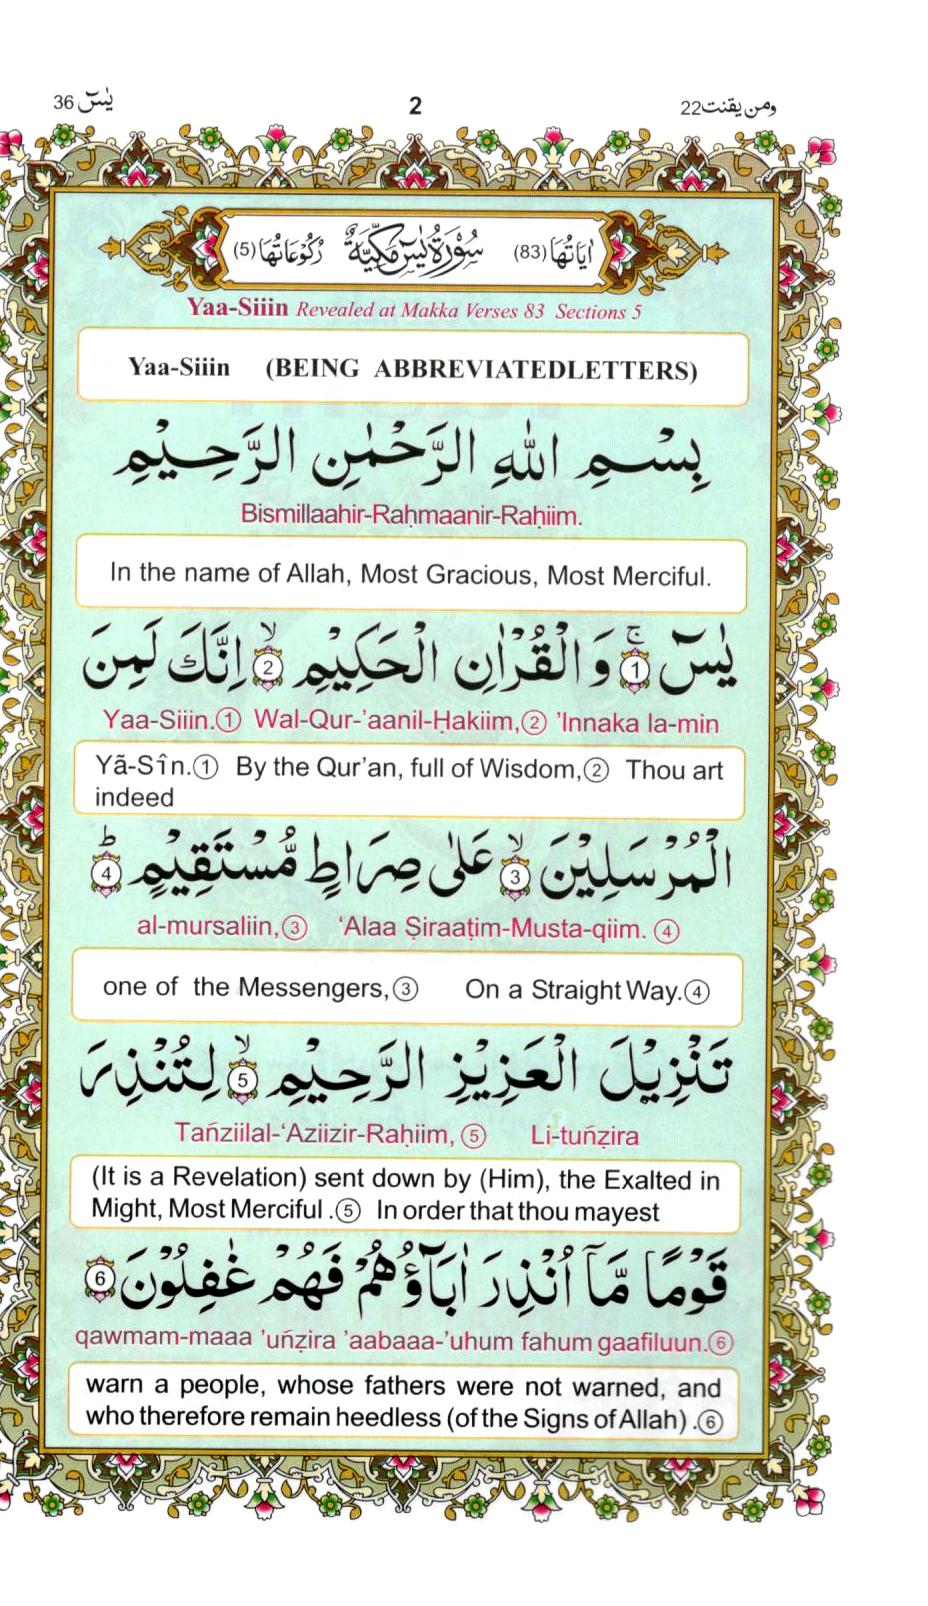 يٰسٓ 36
2
ومن يقنت 22
اٰيَاتُهَا (83) سُوْرَةُ يٰسٓ مَكِّيَّةٌ رُكُوْعَاتُهَا (5)
Yaa-Siiin Revealed at Makka Verses 83 Sections 5
Yaa-Siiin (BEING ABBREVIATEDLETTERS)
بِسْمِ اللهِ الرَّحْمٰنِ الرَّحِيْمِ
Bismillaahir-Raḥmaanir-Raḥiim.
In the name of Allah, Most Gracious, Most Merciful.
يٰسٓ ۚ ① وَالْقُرْاٰنِ الْحَكِيْمِ ۙ ② اِنَّكَ لَمِنَ
Yaa-Siiin.① Wal-Qur-'aanil-Ḥakiim,② 'Innaka la-min
Yã-Sîn.① By the Qur'an, full of Wisdom,② Thou art
indeed
الْمُرْسَلِيْنَ ۙ ③ عَلٰى صِرَاطٍ مُّسْتَقِيْمٍ ؕ ④
al-mursaliin,③ ‘Alaa Ṣiraaṭim-Musta-qiim. ④
one of the Messengers,③ On a Straight Way.④
تَنْزِيْلَ الْعَزِيْزِ الرَّحِيْمِ ۙ ⑤ لِتُنْذِرَ
Tañziilal-‘Aziizir-Raḥiim, ⑤ Li-tuñẓira
(It is a Revelation) sent down by (Him), the Exalted in
Might, Most Merciful .⑤ In order that thou mayest
قَوْمًا مَّآ اُنْذِرَ اٰبَآؤُهُمْ فَهُمْ غٰفِلُوْنَ ⑥
qawmam-maaa 'uñẓira 'aabaaa-'uhum fahum gaafiluun.⑥
warn a people, whose fathers were not warned, and
who therefore remain heedless (of the Signs of Allah) .⑥